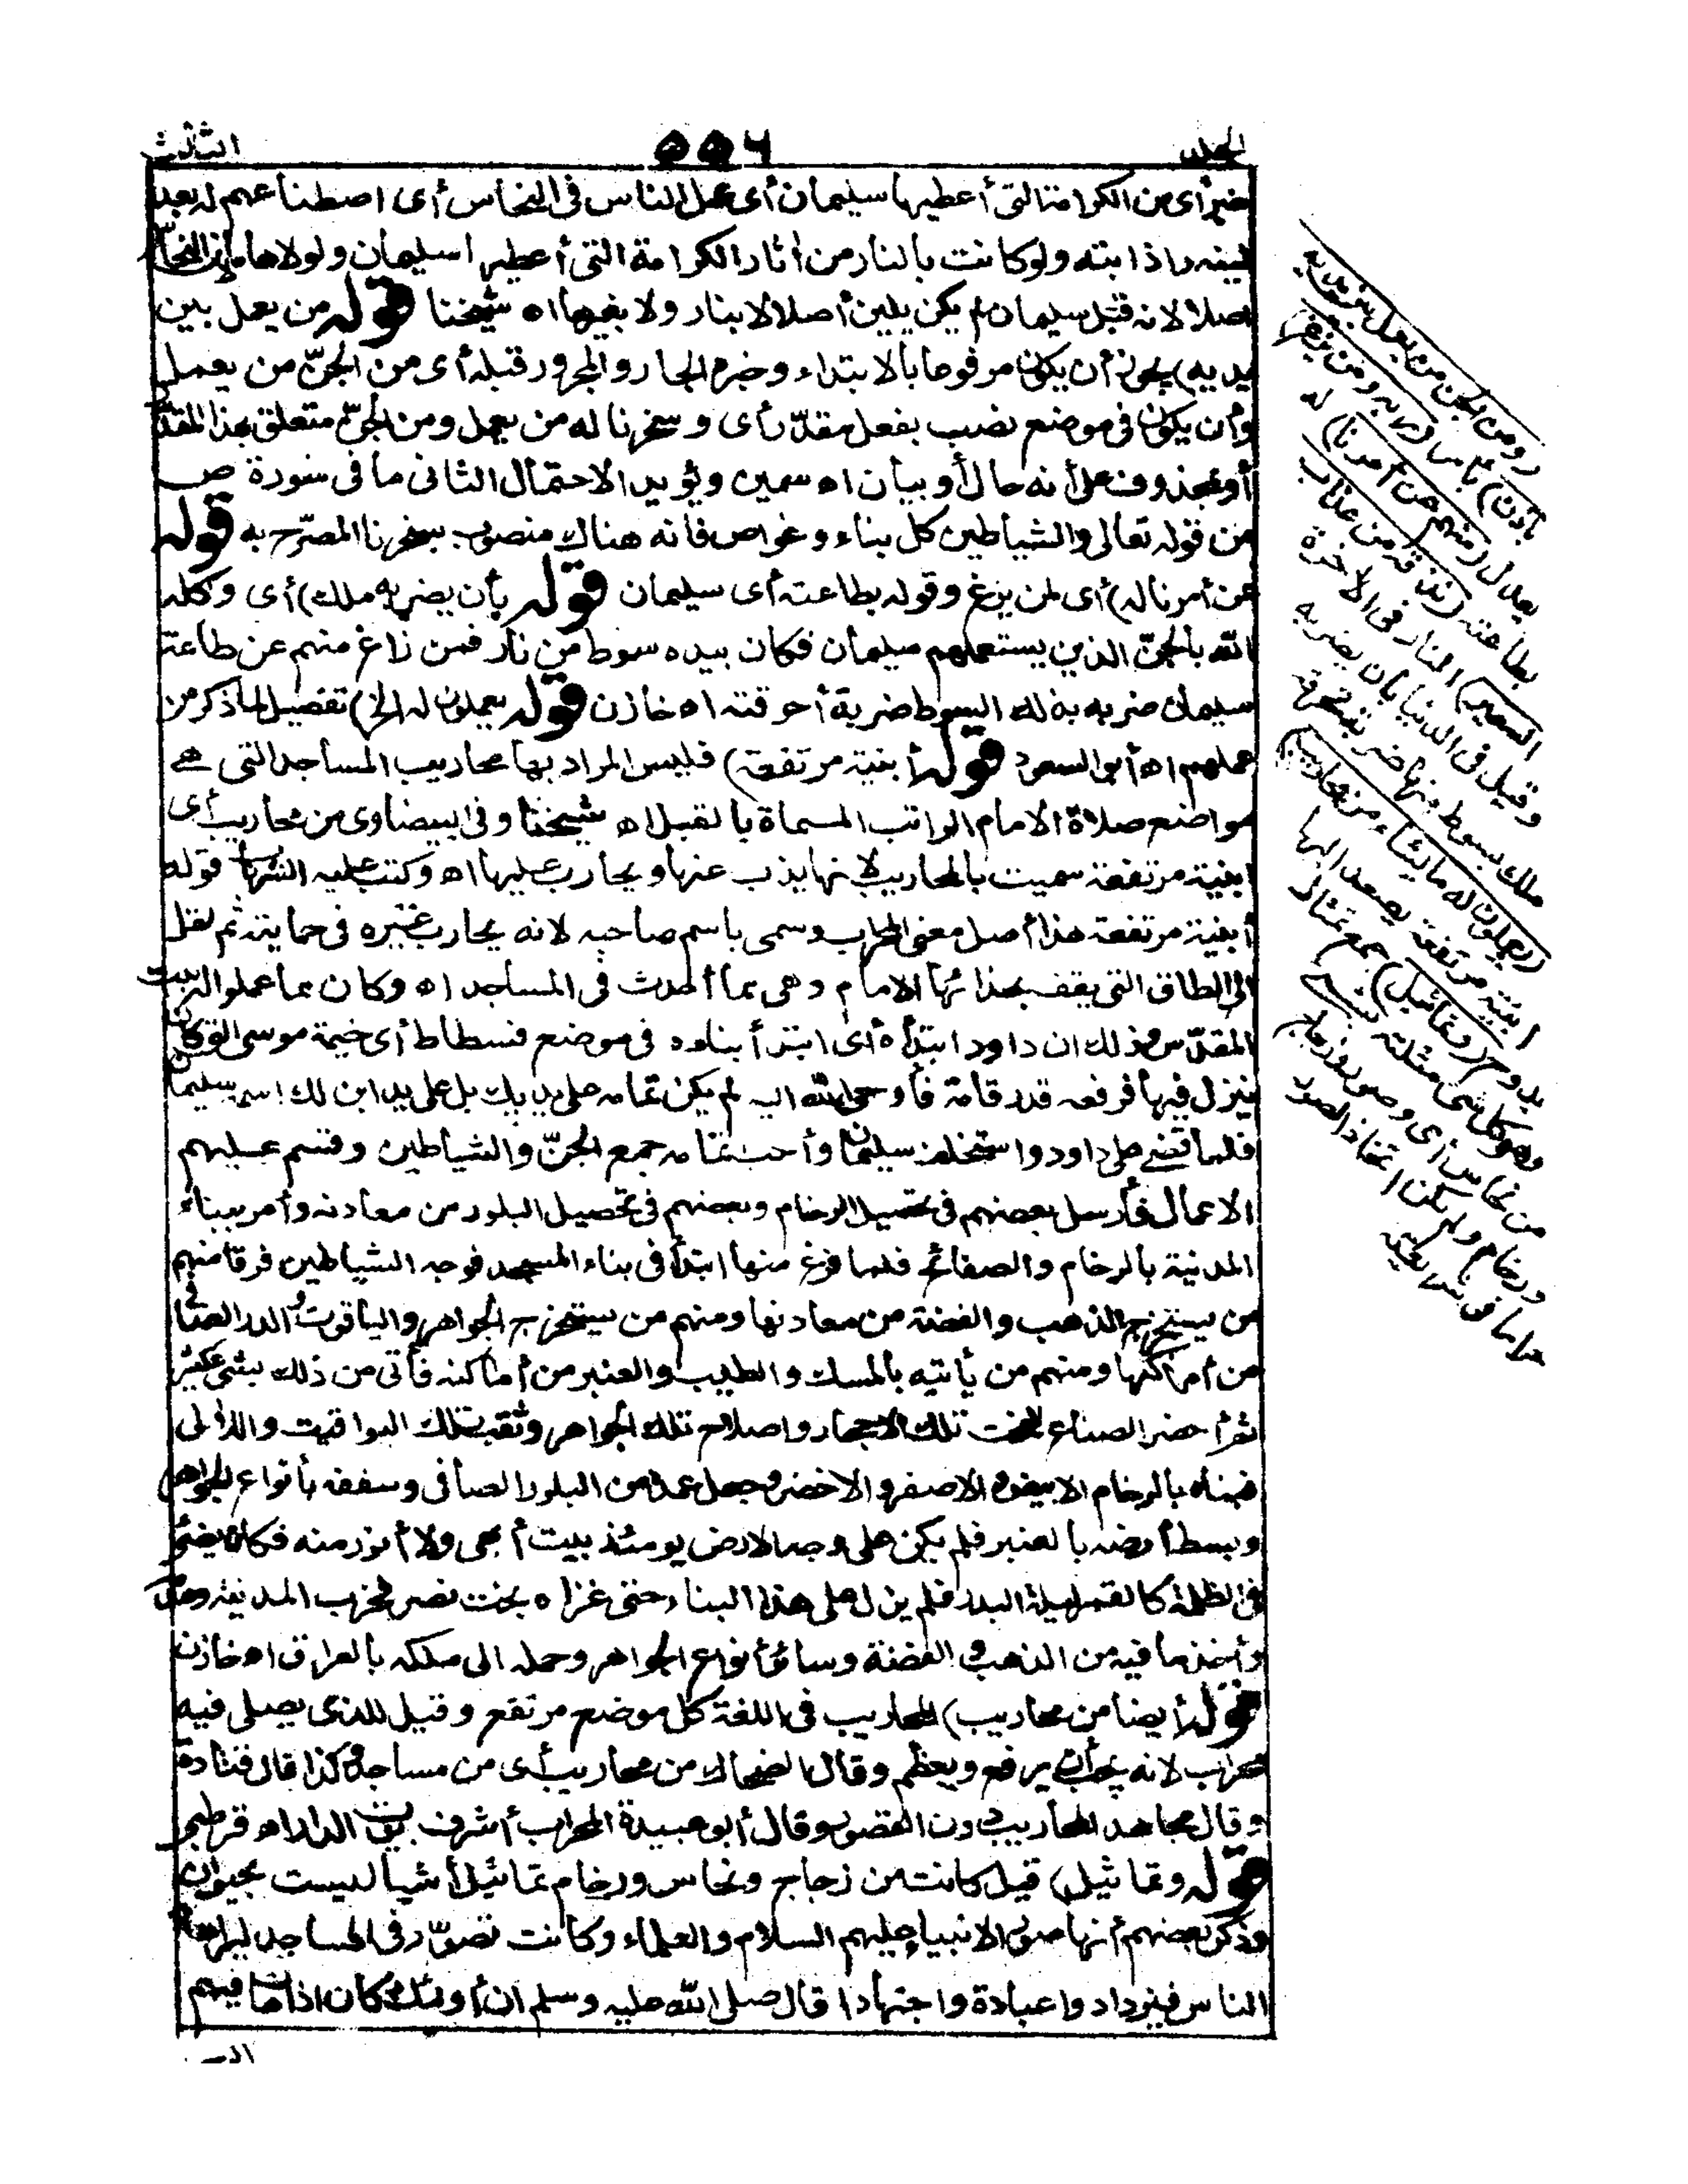 المجلد
٥٥٦
الثالث
خبر أى من الكرامة التى أعطيها سليمان أى عمل الناس فى النحاس أى اصطناعهم له بعد
لينه واذابته ولو كانت بالنار من أثار الكرامة التى أعطيها سليمان ولولاها ما لان النحاس
أصلا لانه قبل سليمان لم يكن يلين أصلا لا بنار ولا بغيرها اه شيخنا قوله من يعمل بين
يديه) يجوز أن يكون مرفوعا بالابتداء وخبره الجار والمجرور قبله أى من الجنّ من يعمل
وأن يكون فى موضع نصب بفعل مقدّر أى وسخرنا له من يعمل ومن الجنّ متعلق بهذا المقدّر
أو بمحذوف على أنه حال أو بيان اه سمين ويؤيد الاحتمال الثانى ما فى سورة ص
من قوله تعالى والشياطين كل بناء وغواص فانه هناك منصوب بسخرنا المصرّح به قوله
عن أمرنا له) أى لمن يزغ وقوله بطاعته أى سليمان قوله بأن يضربه ملك) أى وكله
الله بالجنّ الذين يستعملهم سليمان فكان بيده سوط من نار فمن زاغ منهم عن طاعة
سليمان ضربه بذلك السوط ضربة أحرقته اه خازن قوله يعملون له الخ) تفصيل لما ذكر من
عملهم اه أبو السعود قوله أبنية مرتفعة) فليس المراد بها محاريب المساجد التى هى
مواضع صلاة الامام الراتب المسماة بالقبل اه شيخنا وفى البيضاوى من محاريب أى
ابنية مرتفعة سميت بالمحاريب لانها يذب عنها ويحارب عليها اه وكتب عليه الشهاب قوله
أبنية مرتفعة هذا أصل معنى المحراب وسمى باسم صاحبه لانه يحارب غيره فى حمايته ثم نقل
الى الطاق التى يقف بحذائها الامام وهى مما أحدث فى المساجد اه وكان مما عملوا البيت
المقدّس وذلك ان داود ابتدأه أى ابتدأ بناءه فى موضع فسطاط أى خيمة موسى التى كان
ينزل فيها فرفعه قدر قامة فأوحى الله اليه لم يكن تمامه على يديك بل على يد ابن لك اسمه سليمان
فلما قضى على داود واستخلف سليمان وأحب تمامه جمع الجنّ والشياطين وقسم عليهم
الاعمال فأرسل بعضهم فى تحصيل الرخام وبعضهم فى تحصيل البلور من معادنه وأمر ببناء
المدينة بالرخام والصفائح فلما فرغ منها ابتدأ فى بناء المسجد فوجه الشياطين فرقا منهم
من يستخرج الذهب والفضة من معادنها ومنهم من يستخرج الجواهر والياقوت والدر الصافى
من أماكنها ومنهم من يأتيه بالمسك والطيب والعنبر من أماكنه فأتى من ذلك بشئ كثير
ثم أحضر الصناع لنحت تلك الاحجار واصلاح تلك الجواهر وثقب تلك اليواقيت واللآلى
فبناه بالرخام الابيض والاصفر والاخضر وجعل عمده من البلور الصافى وسقفه بأنواع الجواهر
وبسط أرضه بالعنبر فلم يكن على وجه الارض يومئذ بيت أبهى ولا أنور منه فكان يضئ
فى الظلمة كالقمر ليلة البدر فلم يزل على هذا البناء حتى غزاه بخت نصر فخرب المدينة وهدمه
وأخذ ما فيه من الذهب والفضة وسائر أنواع الجواهر وحمله الى ملكه بالعراق اه خازن
قوله أيضا من محاريب) المحاريب فى اللغة كل موضع مرتفع وقيل للذى يصلى فيه
محراب لانه يجب أن يرفع ويعظم وقال الضحاك من محاريب أى من مساجد وكذا قال قتادة
وقال مجاهد المحاريب دون القصور وقال أبو عبيدة المحراب أشرف بيوت الدار اه قرطبى
قوله وتماثيل) قيل كانت من زجاج ونحاس ورخام تماثيل أشيا ليست بحيوان
وذكر بعضهم أنها صور الانبياء عليهم السلام والعلماء وكانت تصوّر فى المساجد ليراها
الناس فيزدادوا عبادة واجتهادا قال صلى الله عليه وسلم ان أولئك كان اذا مات فيهم
(ومن الجن من يعمل بين يديه
باذن) بأمر (ربه ومن يزغ)
يعدل (منهم عن أمرنا) له
بطاعته (نذقه من عذاب
السعير) النار فى الآخرة
وقيل فى الدنيا بأن يضربه
ملك بسوط منها ضربة تحرقه
(يعملون له ما يشاء من محاريب)
أبنية مرتفعة يصعد اليها
بدرج (وتماثيل) جمع تمثال
وهو كل شئ مثلته بشئ
من نحاس أى وصور وزجاج
ورخام ولم يكن اتخاذ الصور
حراما فى شريعته